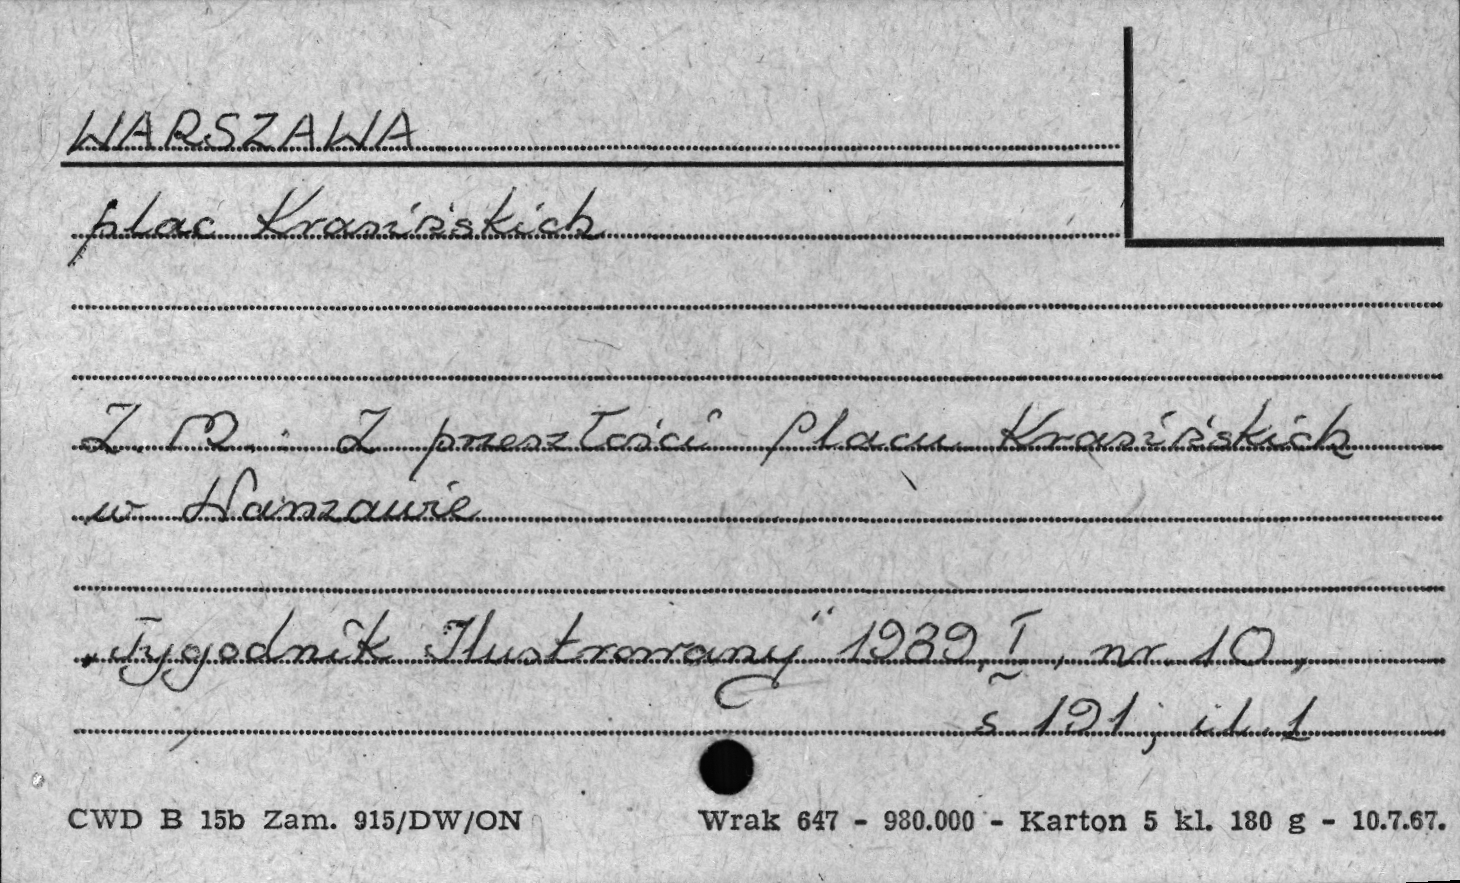 WARSZAWA
plac Krasińskich
Z. M. : Z przeszłości Placu Krasińskich
w Warszawie
„Tygodnik Ilustrowany" 1939, I, nr. 10,
s 191; il. 1
CWD B 15b Zam. 915/DW/ON Wrak 647 - 980.000 - Karton 5 kl. 180 g - 10.7.67.